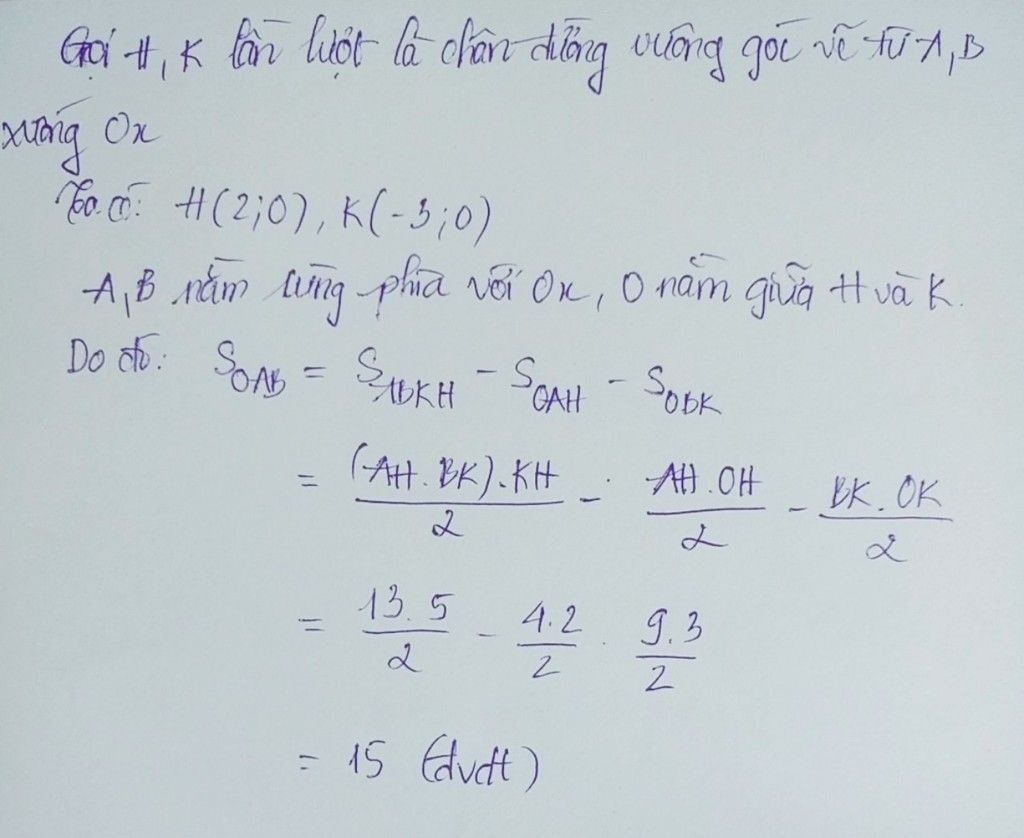 Gọi H, K lần lượt là chân đường vuông góc vẽ từ A, B
xuống Ox
Ta có: H(2;0), K(-3;0)
A, B nằm cùng phía với Ox, O nằm giữa H và K.
Do đó: S_OAB = S_ABKH - S_OAH - S_OBK
= (AH . BK) . KH / 2 - AH . OH / 2 - BK . OK / 2
= 13 . 5 / 2 - 4 . 2 / 2 . 9 . 3 / 2
= 15 (đvdt)